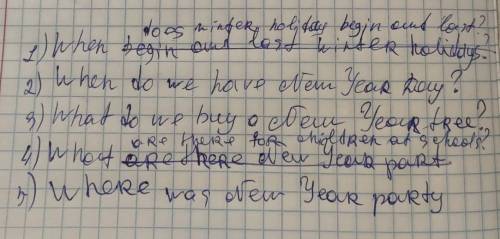 does winter holiday begin and last?
1) When begin and last winter holidays?
2) When do we have New Year Day?
3) What do we buy a New Year tree?
are there for children at schools?
4) What are there New Year part
5) Where was New Year party